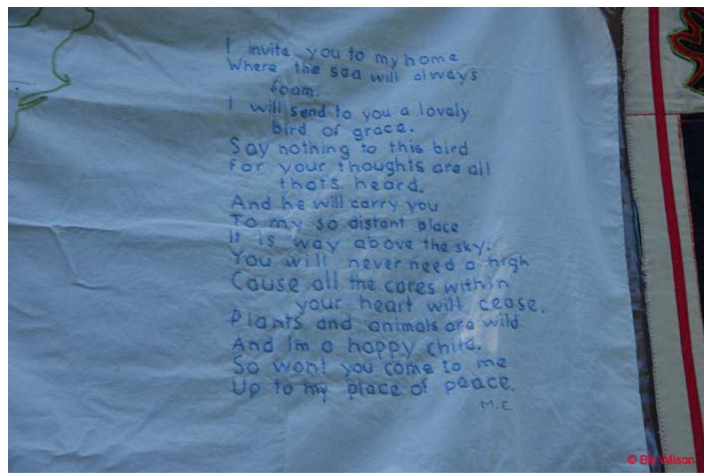 I invite you to my home
Where the sea will always
foam.
I will send to you a lovely
bird of grace.
Say nothing to this bird
For your thoughts are all
thats heard.
And he will carry you
To my so distant place
It is way above the sky.
You will never need a high
Cause all the cares within
your heart will cease.
Plants and animals are wild
And Im a happy child.
So wont you come to me
Up to my place of peace.
M.E.
© Bill Wilson